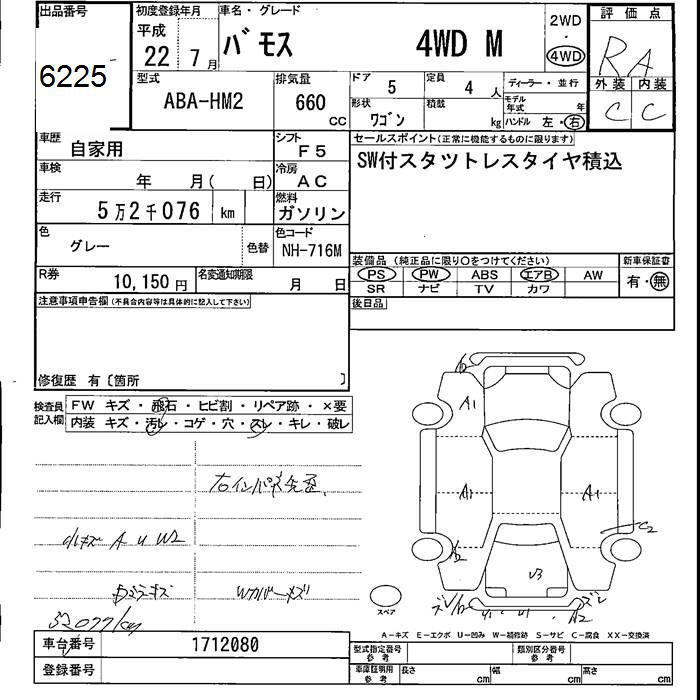 出品番号
6225
初度登録年月
平成
22年7月
車名・グレード
バモス 4WD M
2WD
・
4WD
評価点
RA
外装 内装
C C
型式
ABA-HM2
排気量
660
CC
ドア
5
定員
4人
ディーラー・並行
形状
ワゴン
積載
kg
モデル年式
年
ハンドル 左・右
車歴
自家用
シフト
F5
セールスポイント(正常に機能するものに限ります)
SW付スタツトレスタイヤ積込
車検
年 月( 日)
冷房
AC
走行
5万2千076 km
燃料
ガソリン
色
グレー
色替
色コード
NH-716M
装備品 (純正品に限り○をつけてください)
新車保証書
PS PW ABS エアB AW
有・無
SR ナビ TV カワ
R券
10,150円
名変通知期限
月 日
後日品
注意事項申告欄(不具合内容等は具体的に記入して下さい)
修復歴 有〔箇所 〕
検査員
記入欄
FW キズ・飛石・ヒビ割・リペア跡・×要
内装 キズ・汚レ・コゲ・穴・スレ・キレ・破レ
右インパネ先歪
dLキズ A U W2
Wカバーメズ
52077km
A1
A1
A1
C2
U3
A2
スペア
A-キズ E-エクボ U-凹み W-補修跡 S-サビ C-腐食 XX-交換済
車台番号
1712080
登録番号
型式指定番号
参考
類別区分番号
参考
車庫証明用
参考
長さ
cm
幅
cm
高さ
cm